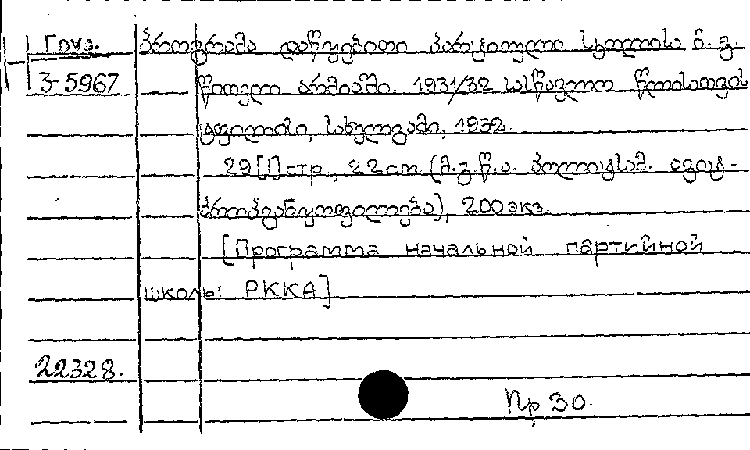 Груз.
3-5967
პროგრამა დაწყებითი პარტიული სკოლისა მ. გ.
წითელი არმიაში. 1931/32 სასწავლო წლისათვის
ტფილისი, სახელგამი, 1932.
29[1]стр., 22см (მ.გ.წ.ა. პოლიტსამ. აგიტ-
პროპგანყოფილება), 200экз.
[Программа начальной партийной
школы РККА]
22328.
Пр 30.